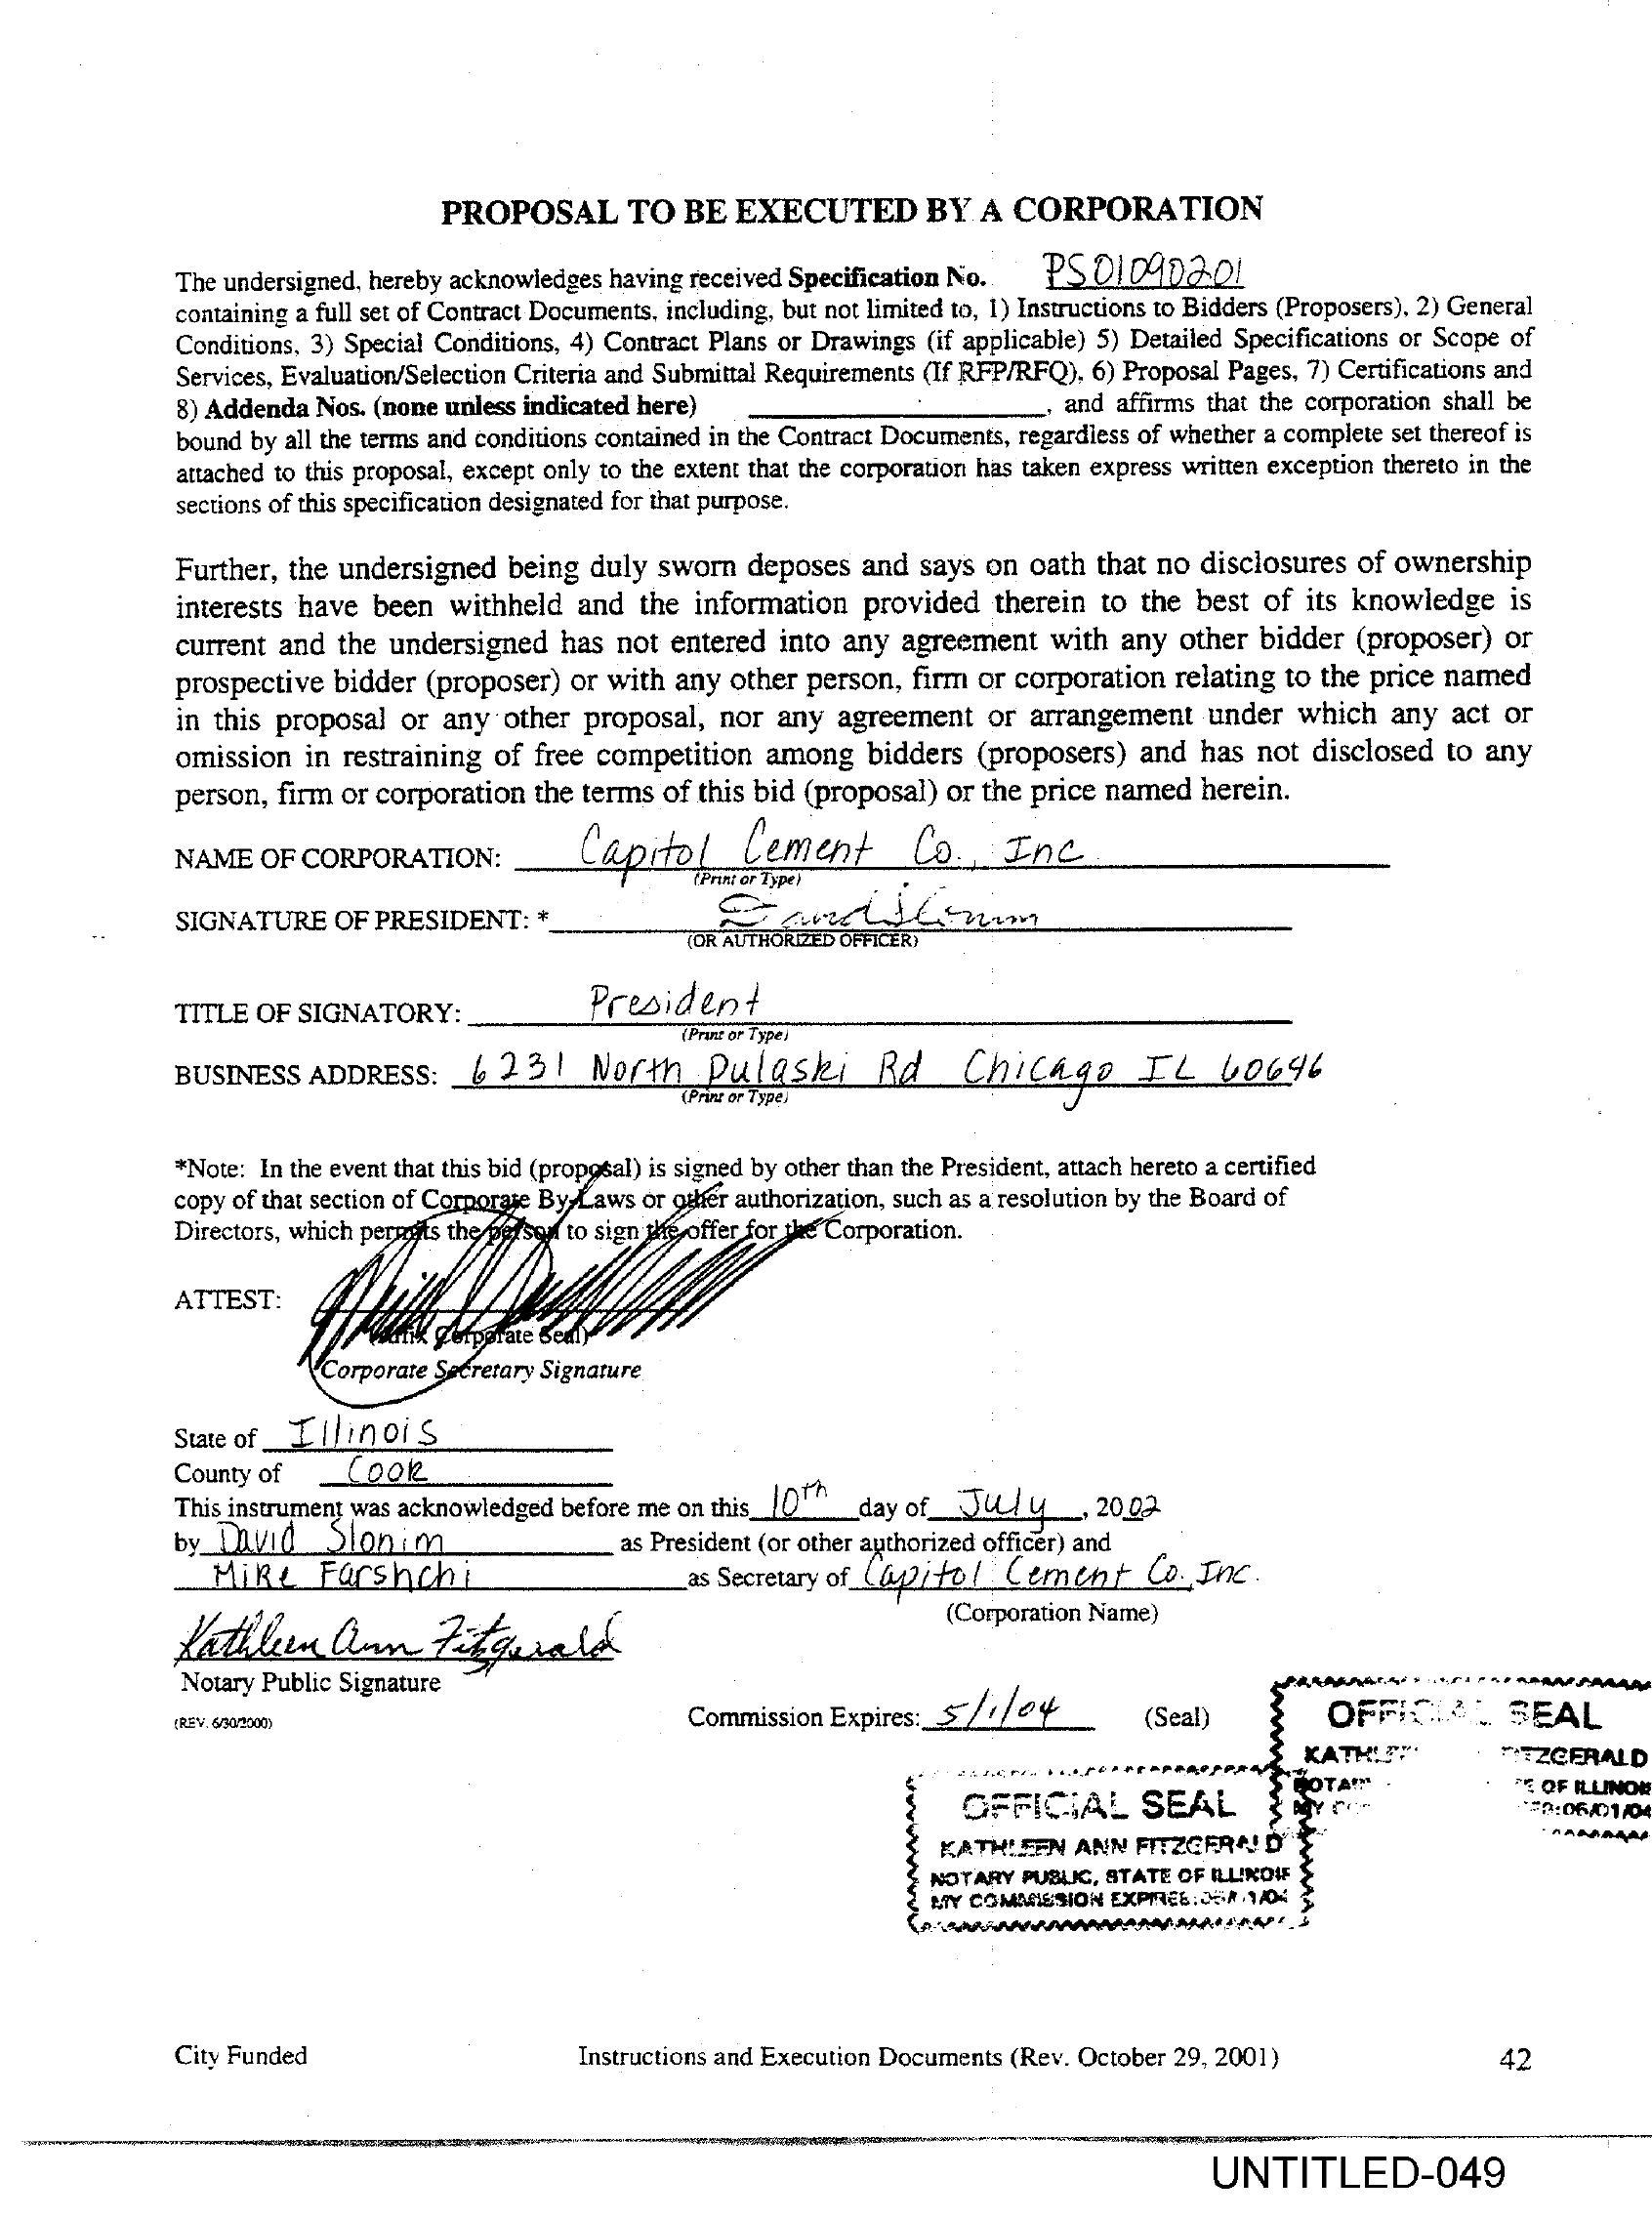 PROPOSAL TO BE EXECUTED BY A CORPORATION
The undersigned, hereby acknowledges having received Specification No. PS01090201
containing a full set of Contract Documents, including, but not limited to, 1) Instructions to Bidders (Proposers), 2) General
Conditions, 3) Special Conditions, 4) Contract Plans or Drawings (if applicable) 5) Detailed Specifications or Scope of
Services, Evaluation/Selection Criteria and Submittal Requirements (If RFP/RFQ), 6) Proposal Pages, 7) Certifications and
8) Addenda Nos. (none unless indicated here) , and affirms that the corporation shall be
bound by all the terms and conditions contained in the Contract Documents, regardless of whether a complete set thereof is
attached to this proposal, except only to the extent that the corporation has taken express written exception thereto in the
sections of this specification designated for that purpose.
Further, the undersigned being duly sworn deposes and says on oath that no disclosures of ownership
interests have been withheld and the information provided therein to the best of its knowledge is
current and the undersigned has not entered into any agreement with any other bidder (proposer) or
prospective bidder (proposer) or with any other person, firm or corporation relating to the price named
in this proposal or any other proposal, nor any agreement or arrangement under which any act or
omission in restraining of free competition among bidders (proposers) and has not disclosed to any
person, firm or corporation the terms of this bid (proposal) or the price named herein.
NAME OF CORPORATION: Capitol Cement Co., Inc
(Print or Type)
SIGNATURE OF PRESIDENT: * David Slonim
(OR AUTHORIZED OFFICER)
TITLE OF SIGNATORY: President
(Print or Type)
BUSINESS ADDRESS: 6231 North Pulaski Rd Chicago IL 60646
(Print or Type)
*Note: In the event that this bid (proposal) is signed by other than the President, attach hereto a certified
copy of that section of Corporate By-Laws or other authorization, such as a resolution by the Board of
Directors, which permits the person to sign the offer for the Corporation.
ATTEST:
(Affix Corporate Seal)
Corporate Secretary Signature
State of Illinois
County of Cook
This instrument was acknowledged before me on this 10th day of July, 2002
by David Slonim as President (or other authorized officer) and
Mike Farshchi as Secretary of Capitol Cement Co., Inc.
(Corporation Name)
Kathleen Ann Fitzgerald
Notary Public Signature
Commission Expires: 5/1/04 (Seal)
(REV. 6/30/2000)
OFFICIAL SEAL
FITZGERALD
OF ILLINOIS
:06/01/04
OFFICIAL SEAL
KATHLEEN ANN FITZGERALD
NOTARY PUBLIC, STATE OF ILLINOIS
MY COMMISSION EXPIRES:
City Funded Instructions and Execution Documents (Rev. October 29, 2001) 42
UNTITLED-049